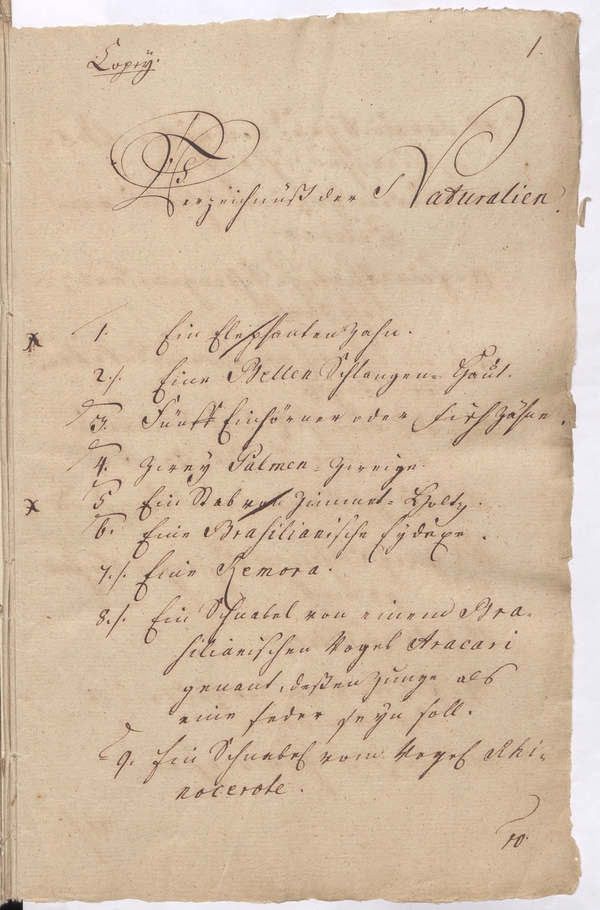 Copey.
1.
Verzeichnüß der Naturalien.
1. Ein Elephanten Zahn.
2./. Eine Bellen Schlangen-Haut.
3. Fünff Einhörner oder Fisch Zähne.
4. Zwey Palmen-Zweige.
5 Ein Stab von Zimmet-Holtz.
6. Eine Brasilianische Eydexe.
7./. Eine Remora.
8./. Ein Schnabel von einem Bra-
silianischen Vogel Aracari
genant, deßen Zunge als
eine feder seyn soll.
9. Ein Schnabel vom Vogel Rhi-
nocerote.
10.